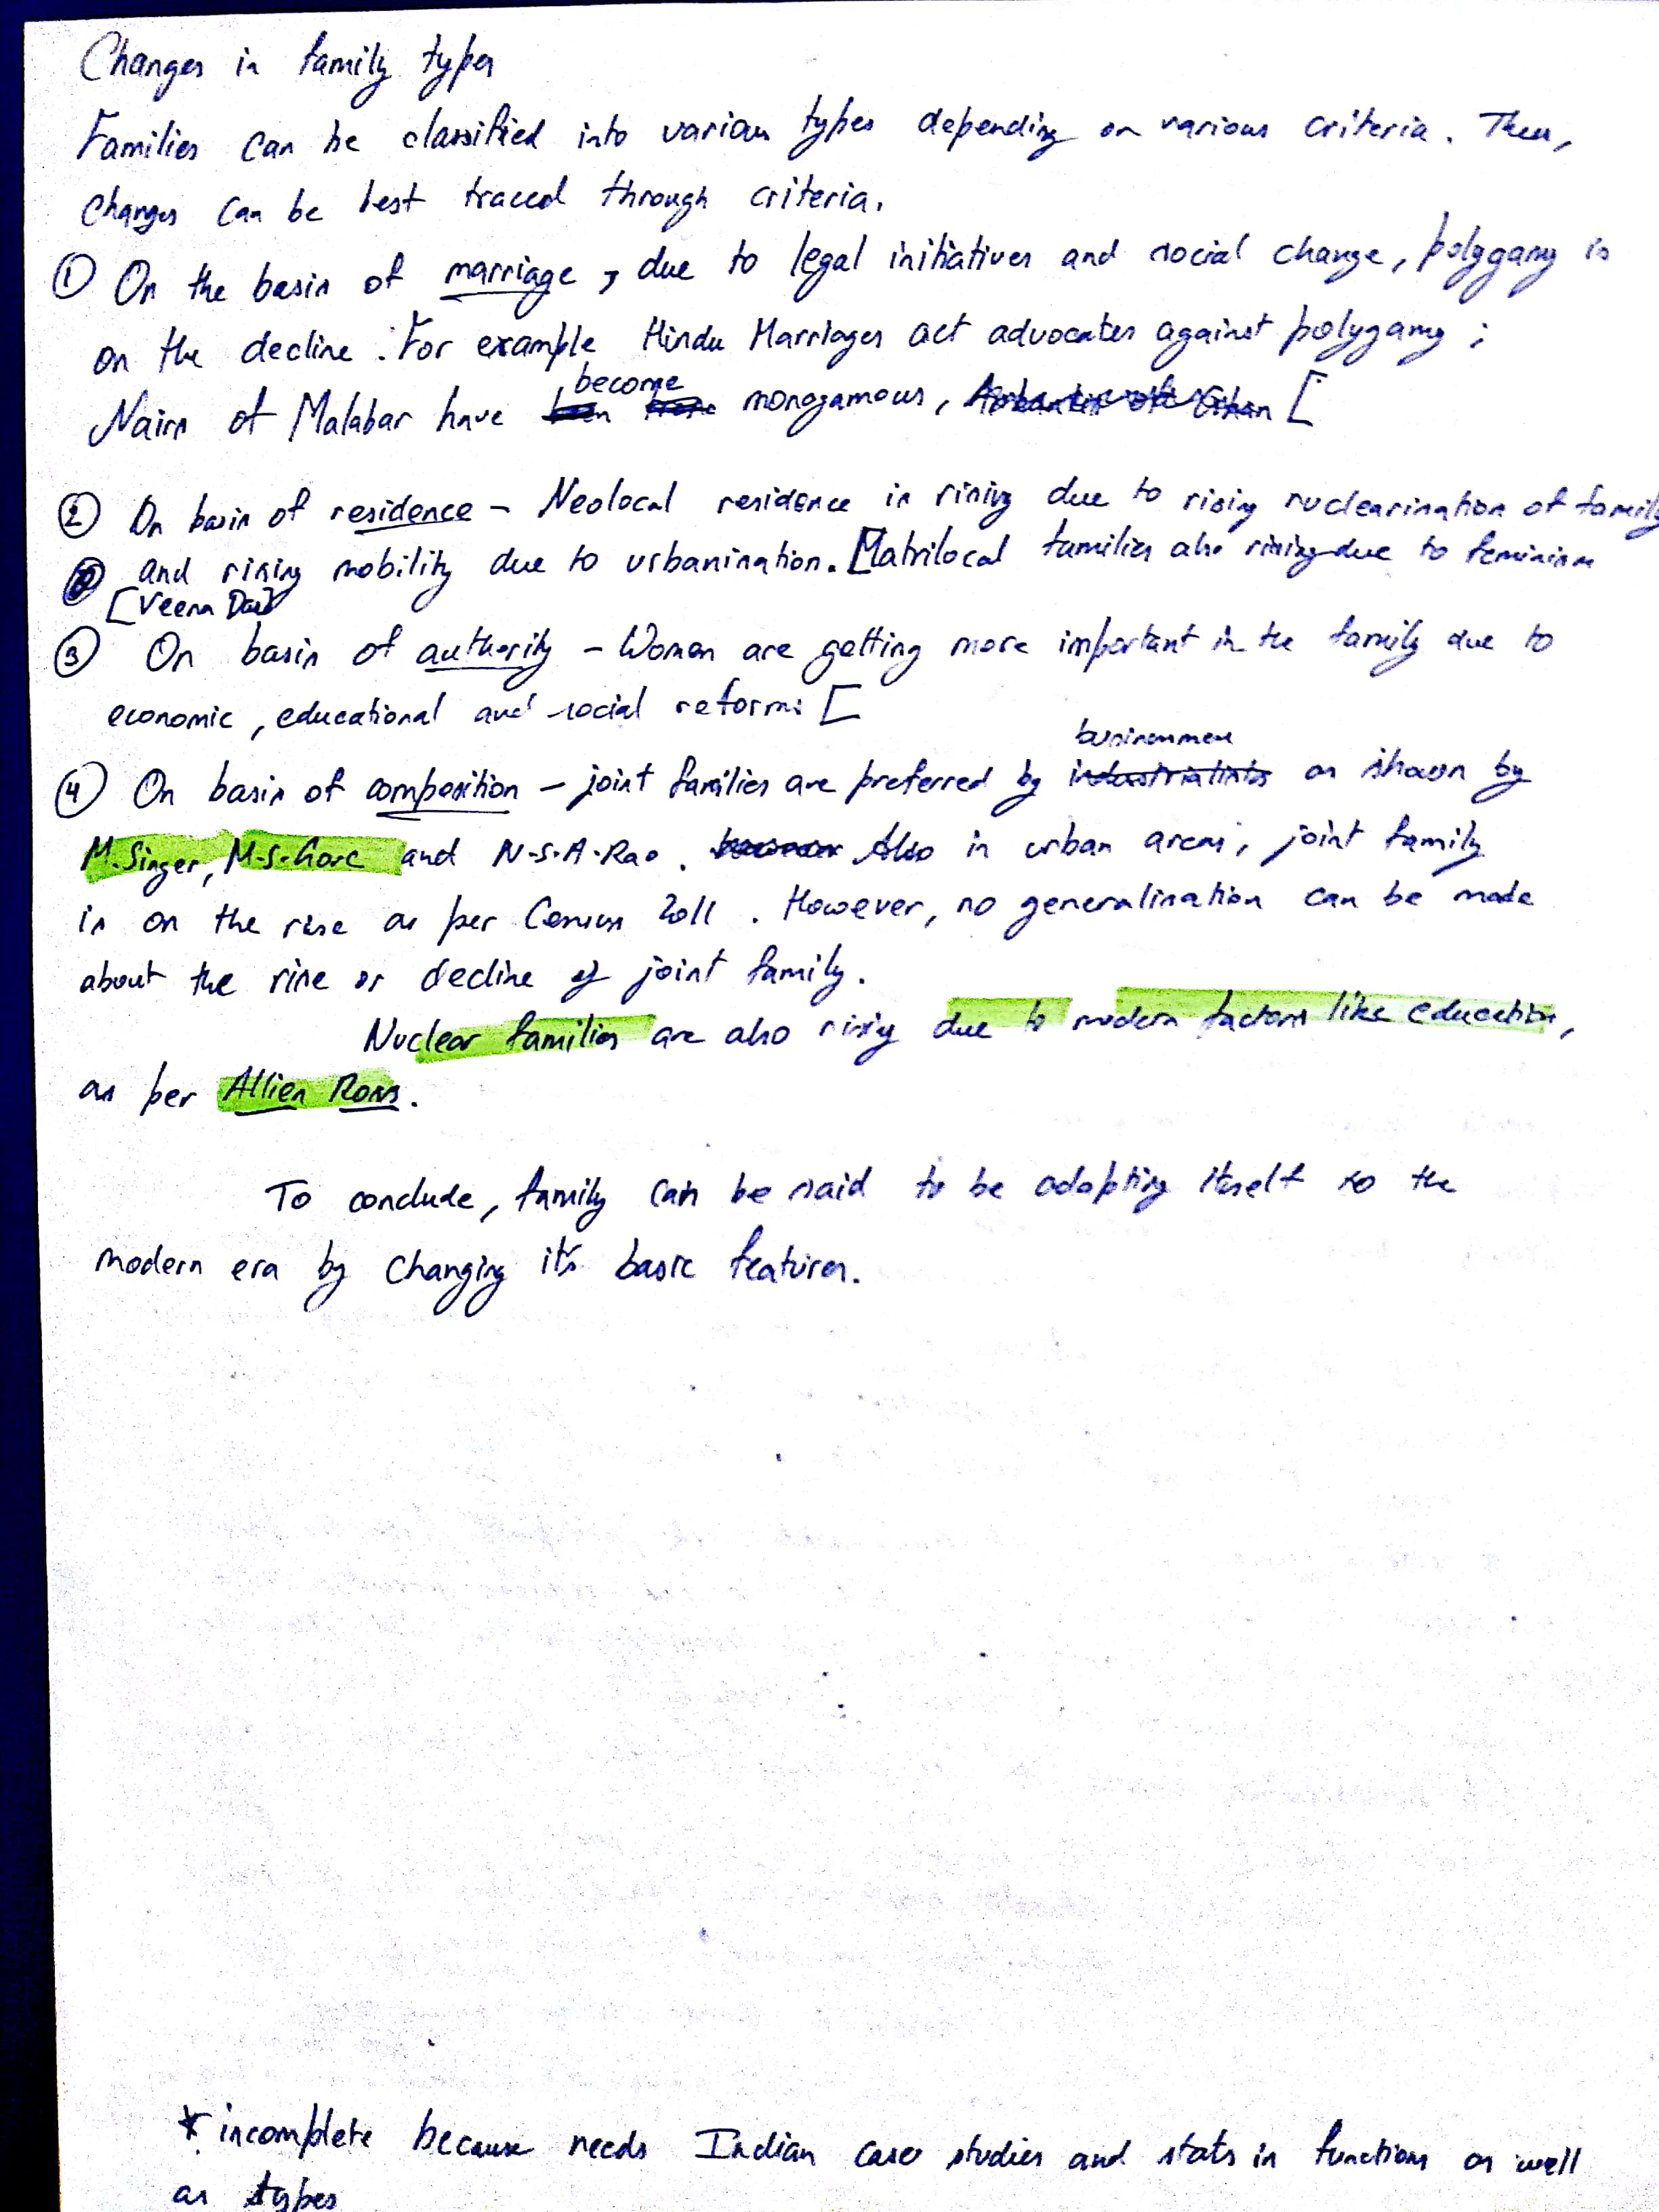 Changes in family types
Families can be classified into various types depending on various criteria. Then,
changes can be best traced through criteria.
① On the basis of marriage, due to legal initiatives and social change, polygamy is
on the decline. For example Hindu Marriages act advocates against polygamy;
become
Nairs of Malabar have monogamous, [
② On basis of residence - Neolocal residence is rising due to rising nuclearisation of family
and rising mobility due to urbanisation. [Matrilocal families also rising due to feminism
[Veena Das]
③ On basis of authority - Women are getting more important in the family due to
economic, educational and social reforms [
businessmen
④ On basis of composition - joint families are preferred by industrialists as shown by
M. Singer, M.S. Gore and N.S.A. Rao. Also in urban areas, joint family
is on the rise as per Census 2011. However, no generalisation can be made
about the rise or decline of joint family.
Nuclear families are also rising due to modern factors like education,
as per Allien Ross.
To conclude, family can be said to be adapting itself to the
modern era by changing it's basic features.
* incomplete because needs Indian case studies and stats in functions as well
as types